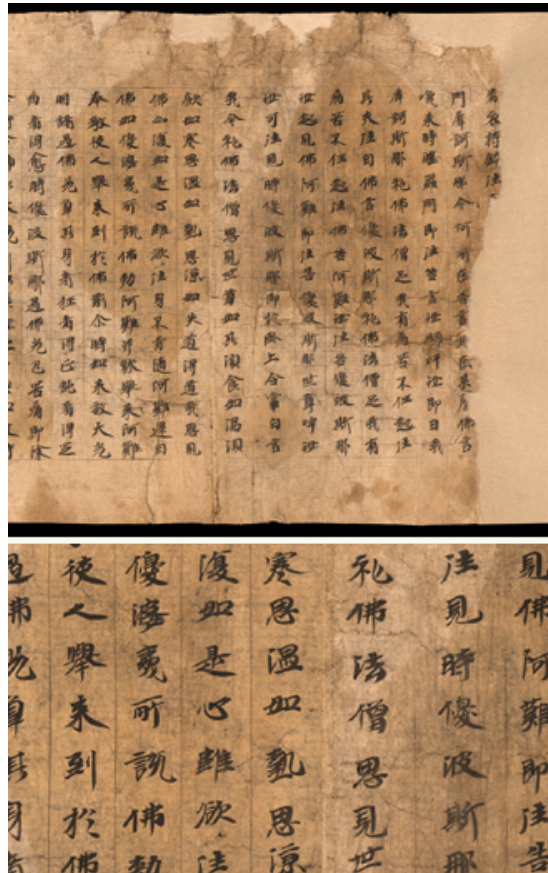 門摩訶斯那今何所在答言
喚來時
摩訶斯那礼佛法僧足我有病苦不任起往
白佛言優波斯那礼佛法僧足我有
病苦不任起往佛告阿難汝往告優波斯那
汝起見佛阿難即往告優波斯那世尊呼汝
汝可往見時優波斯那即於卧上合掌白言
我今礼佛法僧思見世尊如飢須食如渴須
飲如寒思温如熱思涼如失道得道我思見
佛亦復如是心雖欲往身不肯随阿難還白
佛如優婆夷所說佛勅阿難并牀舉來阿難
奉教使人舉來到於佛前尒時如來放大光
明諸遇佛光其身者狂者得正乱者得定
病者得愈時優波斯那遇佛光已苦痛即除
見佛阿難即往告
往見時優波斯那
礼佛法僧思見世
寒思温如熱思涼
復如是心雖欲往
優婆夷所說佛勅
使人舉來到於佛
遇佛光